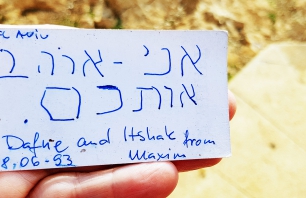 Aviv
אני - אוהב
אותכם.
Dafne and Itshak from
8.06-93 Maxim.